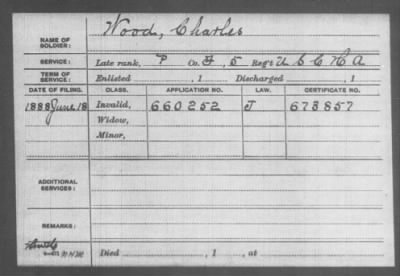 NAME OF SOLDIER: Wood, Charles
SERVICE: Late rank, P Co. F, 5 Reg't U S C H A
TERM OF SERVICE: Enlisted , 1 Discharged , 1
DATE OF FILING. CLASS. APPLICATION NO. LAW. CERTIFICATE NO.
1888 June 18 Invalid, 660252 J 673857
Widow,
Minor,
ADDITIONAL SERVICES:
REMARKS:
Died , 1 , at